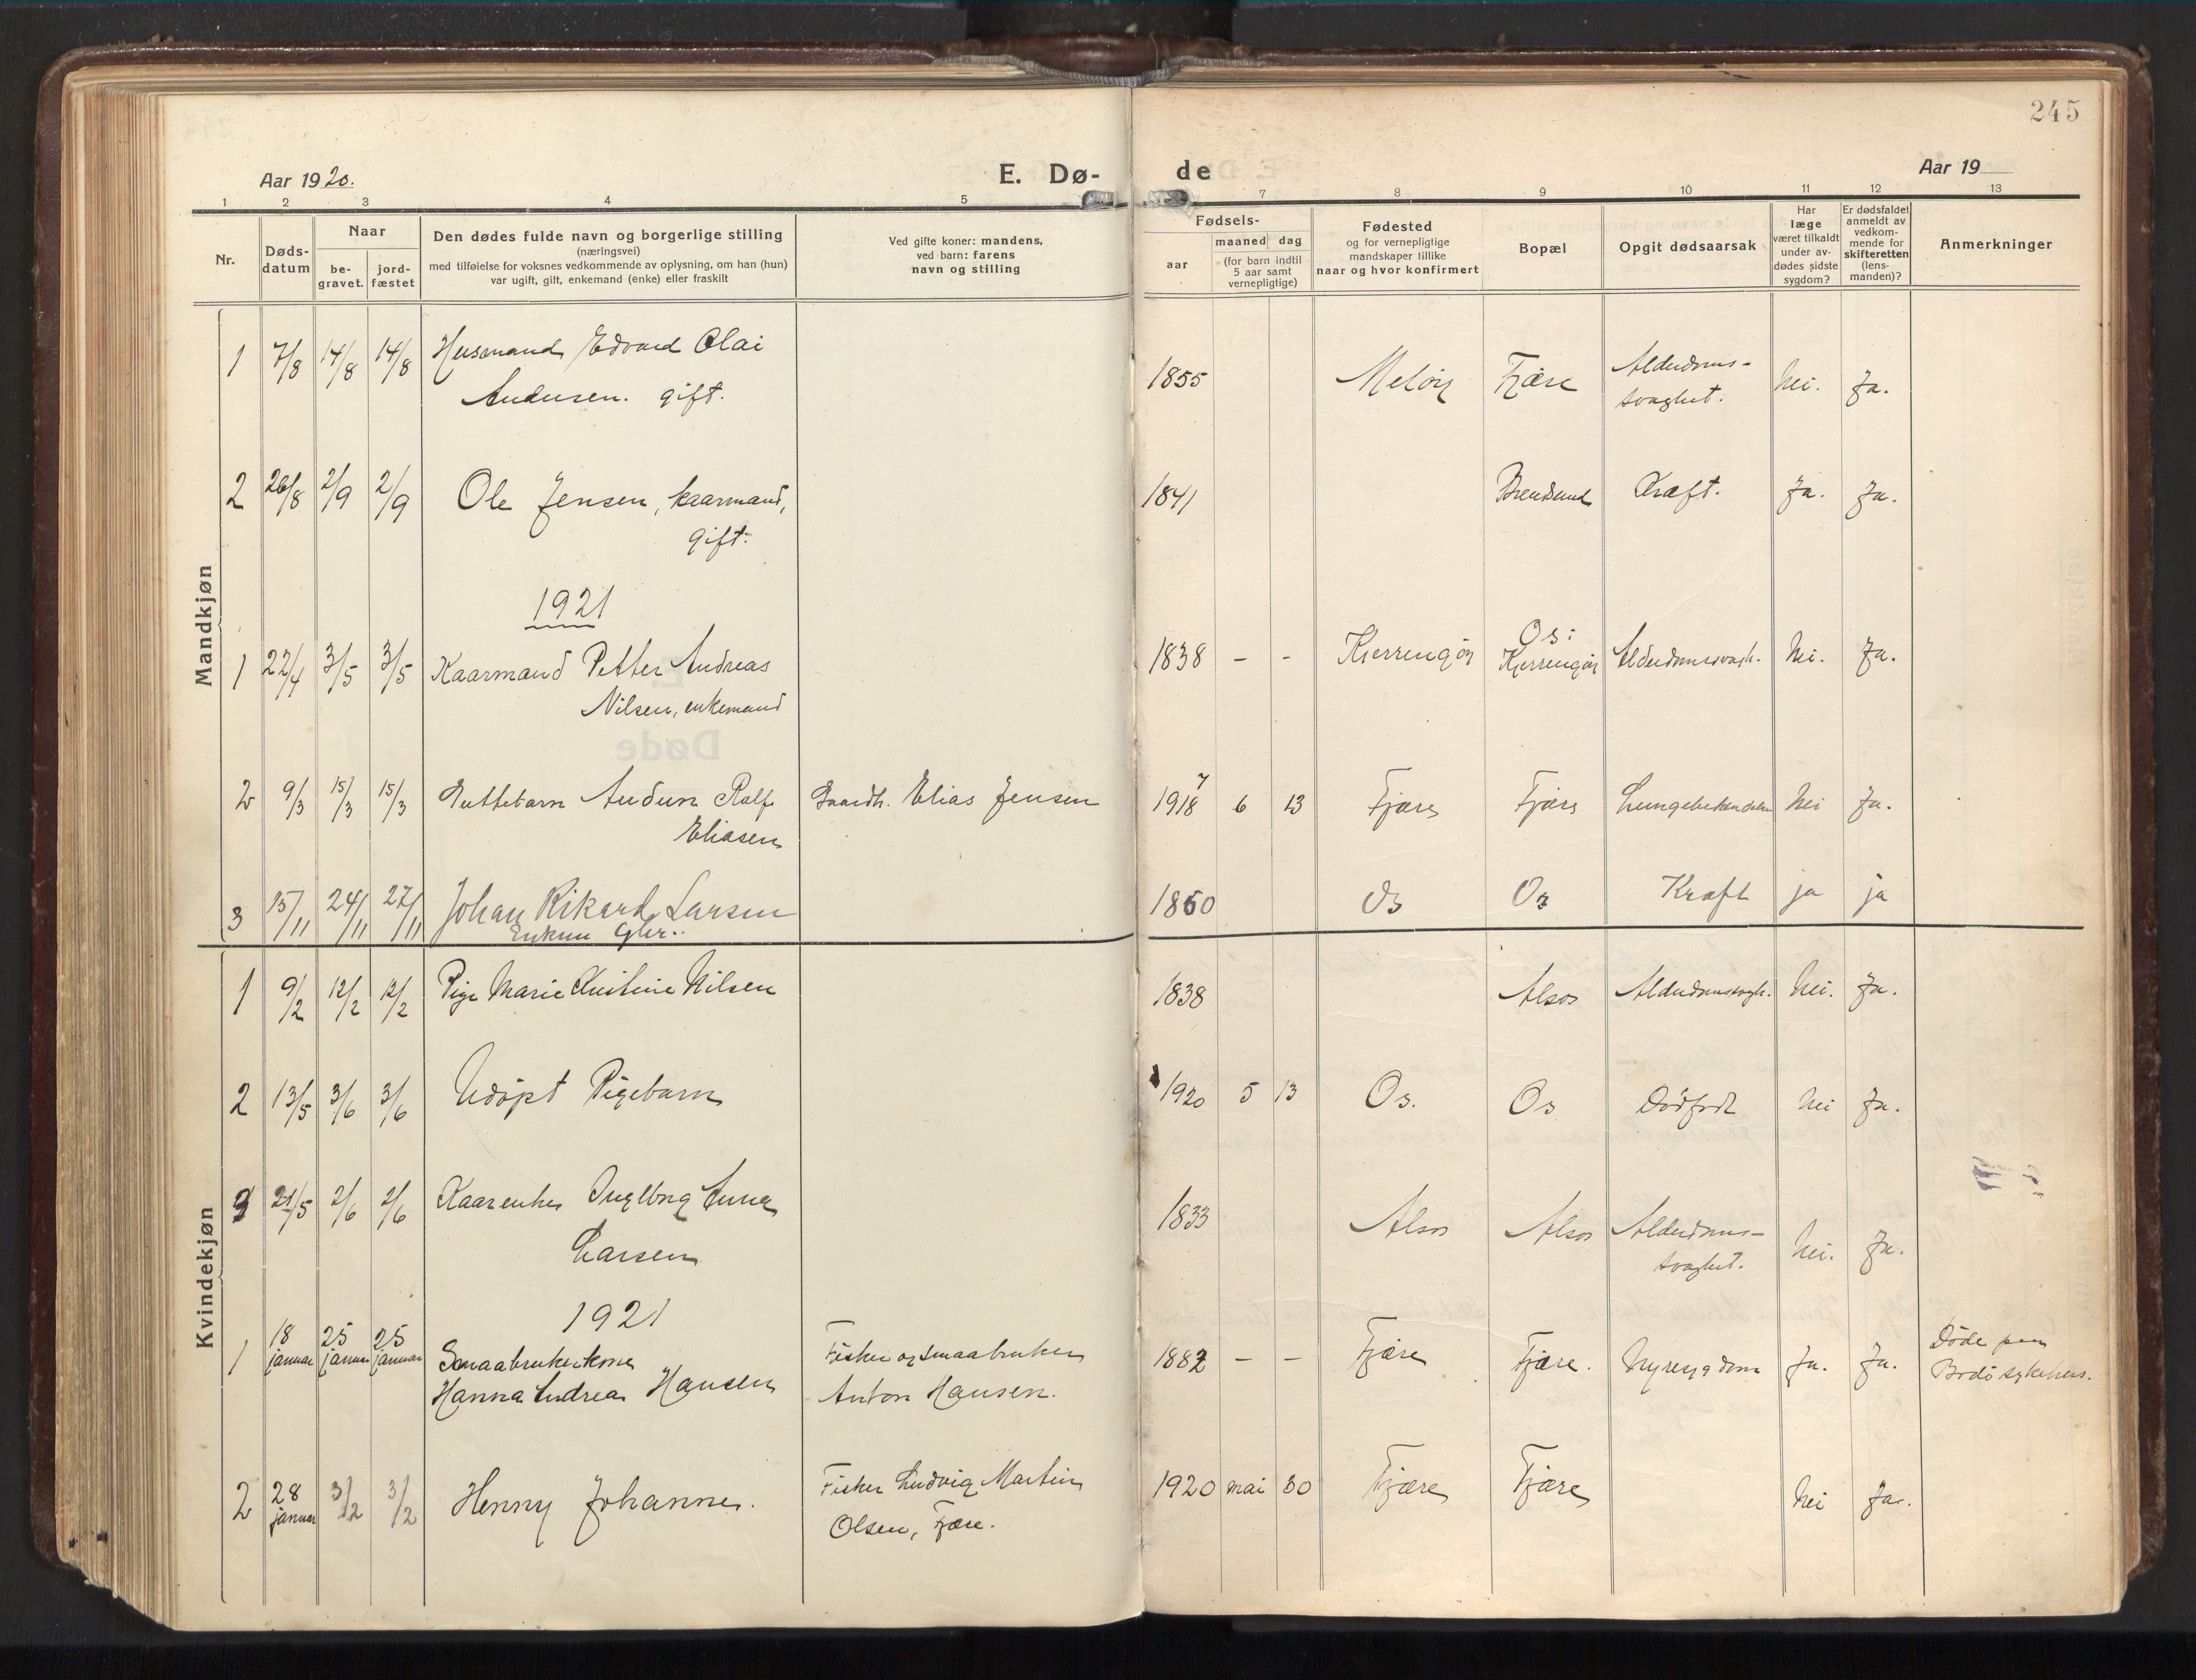 245
Aar 1920.
E. Dø-
de
Aar 19
1 2 3 4 5 7 8 9 10 11 12 13
Nr.
Døds-
datum
Naar
be-
gravet.
jord-
fæstet
Den dødes fulde navn og borgerlige stilling
(næringsvei)
med tilføielse for voksnes vedkommende av oplysning, om han (hun)
var ugift, gift, enkemand (enke) eller fraskilt
Ved gifte koner: mandens,
ved barn: farens
navn og stilling
Fødsels-
aar
maaned dag
(for barn indtil
5 aar samt
vernepligtige)
Fødested
og for vernepligtige
mandskaper tillike
naar og hvor konfirmert
Bopæl
Opgit dødsaarsak
Har
læge
været tilkaldt
under av-
dødes sidste
sygdom?
Er dødsfaldet
anmeldt av
vedkom-
mende for
skifteretten
(lens-
manden)?
Anmerkninger
Mandkjøn
1 7/8 14/8 14/8 Husmand Edvard Olai
Andersen. gift.
1855 Meløy Fjære Alderdoms-
svaghet. Nei. Ja.
2 26/8 2/9 2/9 Ole Jensen, kaarmand,
gift.
1841 Kræft. Ja. Ja.
1921
1 22/4 3/5 3/5 Kaarmand Petter Andreas
Nilsen, enkemand
1838 - - Kjerringøy Os:
Kjerringøy Alderdomssvagh. Nei. Ja.
2 9/3 15/3 15/3 Guttebarn Audun Ralf
Eliasen
Gaardb. Elias Jensen
7
1918 6 13 Fjære Fjære Lungebetændelse Nei Ja.
3 15/11 24/11 27/11 Johan Rikard Larsen
Enkem Gbr..
1860 Os Os Kræft ja ja
Kvindekjøn
1 9/2 12/2 12/2 Pige Marie Kristine Nilsen
1838 Alsos Alderdomssvagh. Nei. Ja.
2 13/5 3/6 3/6 Udøpt Pigebarn
1920 5 13 Os. Os Dødfødt Nei Ja.
3 21/5 2/6 2/6 Kaarenke Ingeborg Anna
Larsen
1833 Alsos Alsos Alderdoms-
svaghet. Nei. Ja.
1921
1 18
januar 25
januar 25
januar Smaabrukerkone
Hanna Andrea Hansen
Fisker og smaabruker
Anton Hansen.
1882 - - Fjære Fjære. Nyresygdom Ja. Ja. Døde paa
Bodø sykehus.
2 28
januar 3/2 3/2 Henny Johanne.
Fisker Ludvig Martin
Olsen, Fjære.
1920 mai 30 Fjære Fjære Nei Ja.